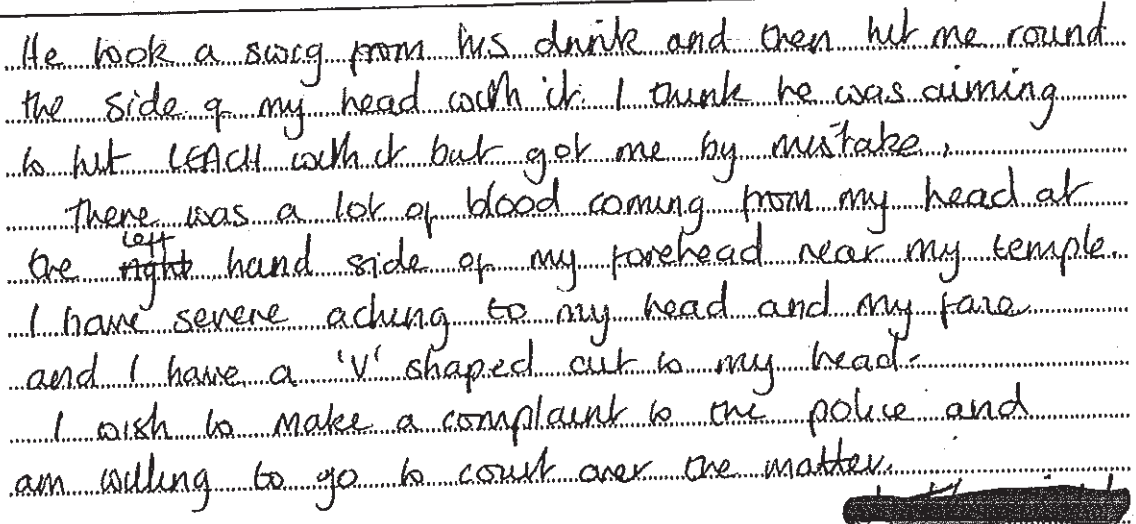 He took a swig from his drink and then hit me round
the side of my head with it. I think he was aiming
to hit LEACH with it but got me by mistake.
There was a lot of blood coming from my head at
the ~~right~~ left hand side of my forehead near my temple.
I have severe aching to my head and my face
and I have a 'V' shaped cut to my head.
I wish to make a complaint to the police and
am willing to go to court over the matter.